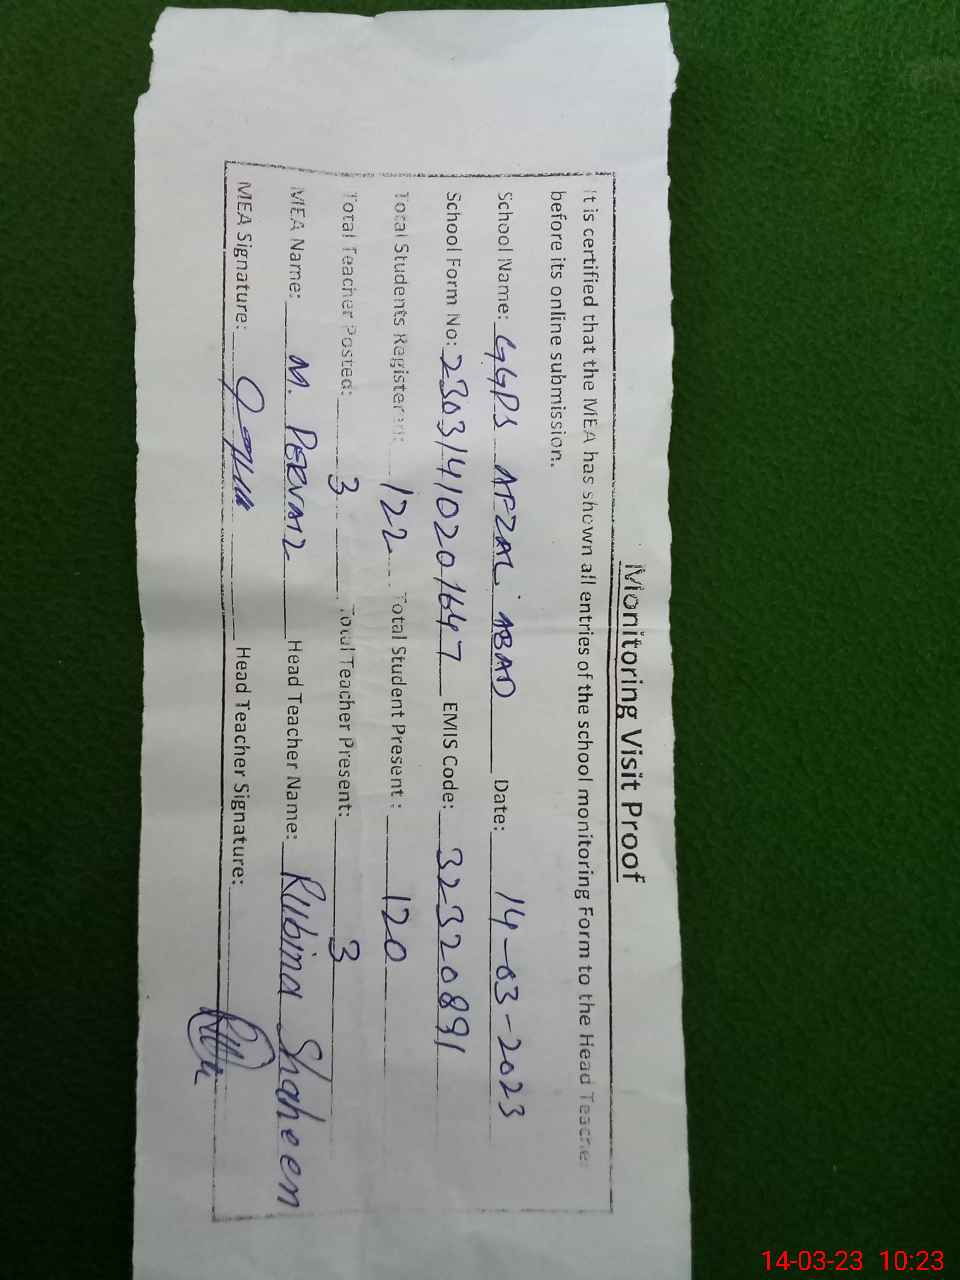 Monitoring Visit Proof
It is certified that the MEA has shown all entries of the school monitoring Form to the Head Teacher
before its online submission.
School Name: GGPS AFZAL ABAD Date: 14-03-2023
School Form No: 23031410201647 EMIS Code: 32320891
Total Students Registered: 122 Total Student Present : 120
Total Teacher Posted: 3 Total Teacher Present: 3
MEA Name: M. PERVAIZ Head Teacher Name: Rubina Shaheen
MEA Signature: Head Teacher Signature:
14-03-23 10:23